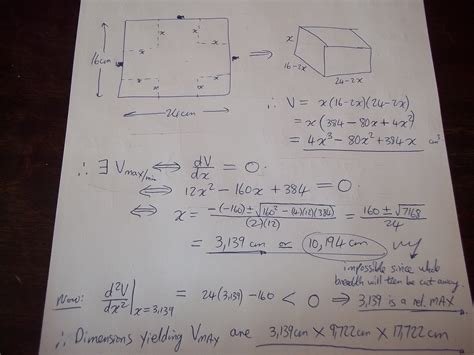 x x
x x
16cm
24cm
⇒
x
16-2x
24-2x
∴ V = x(16-2x)(24-2x)
= x(384 - 80x + 4x²)
= 4x³ - 80x² + 384x cm³
∴ ∃ Vmax/min ⇔ dV/dx = 0
⇔ 12x² - 160x + 384 = 0
⇔ x = -(-160) ± √160² - (4)(12)(384) / (2)(12) = 160 ± √7168 / 24
= 3,139 cm or 10,194 cm
impossible since whole
breadth will then be cut away.
Now: d²V/dx² | x=3,139 = 24(3,139) - 160 < 0 ⇒ 3,139 is a rel. MAX
∴ Dimensions yielding VMAX are 3,139cm × 9,722cm × 17,722cm